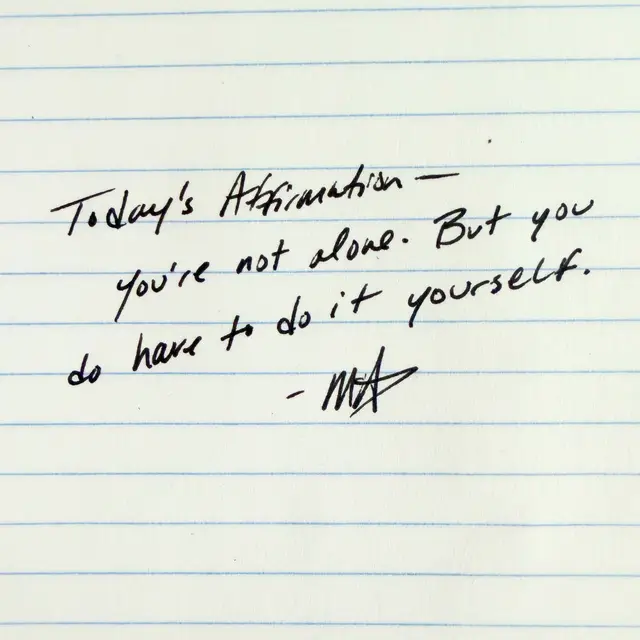 Today's Affirmation —
you're not alone. But you
do have to do it yourself.
- MA